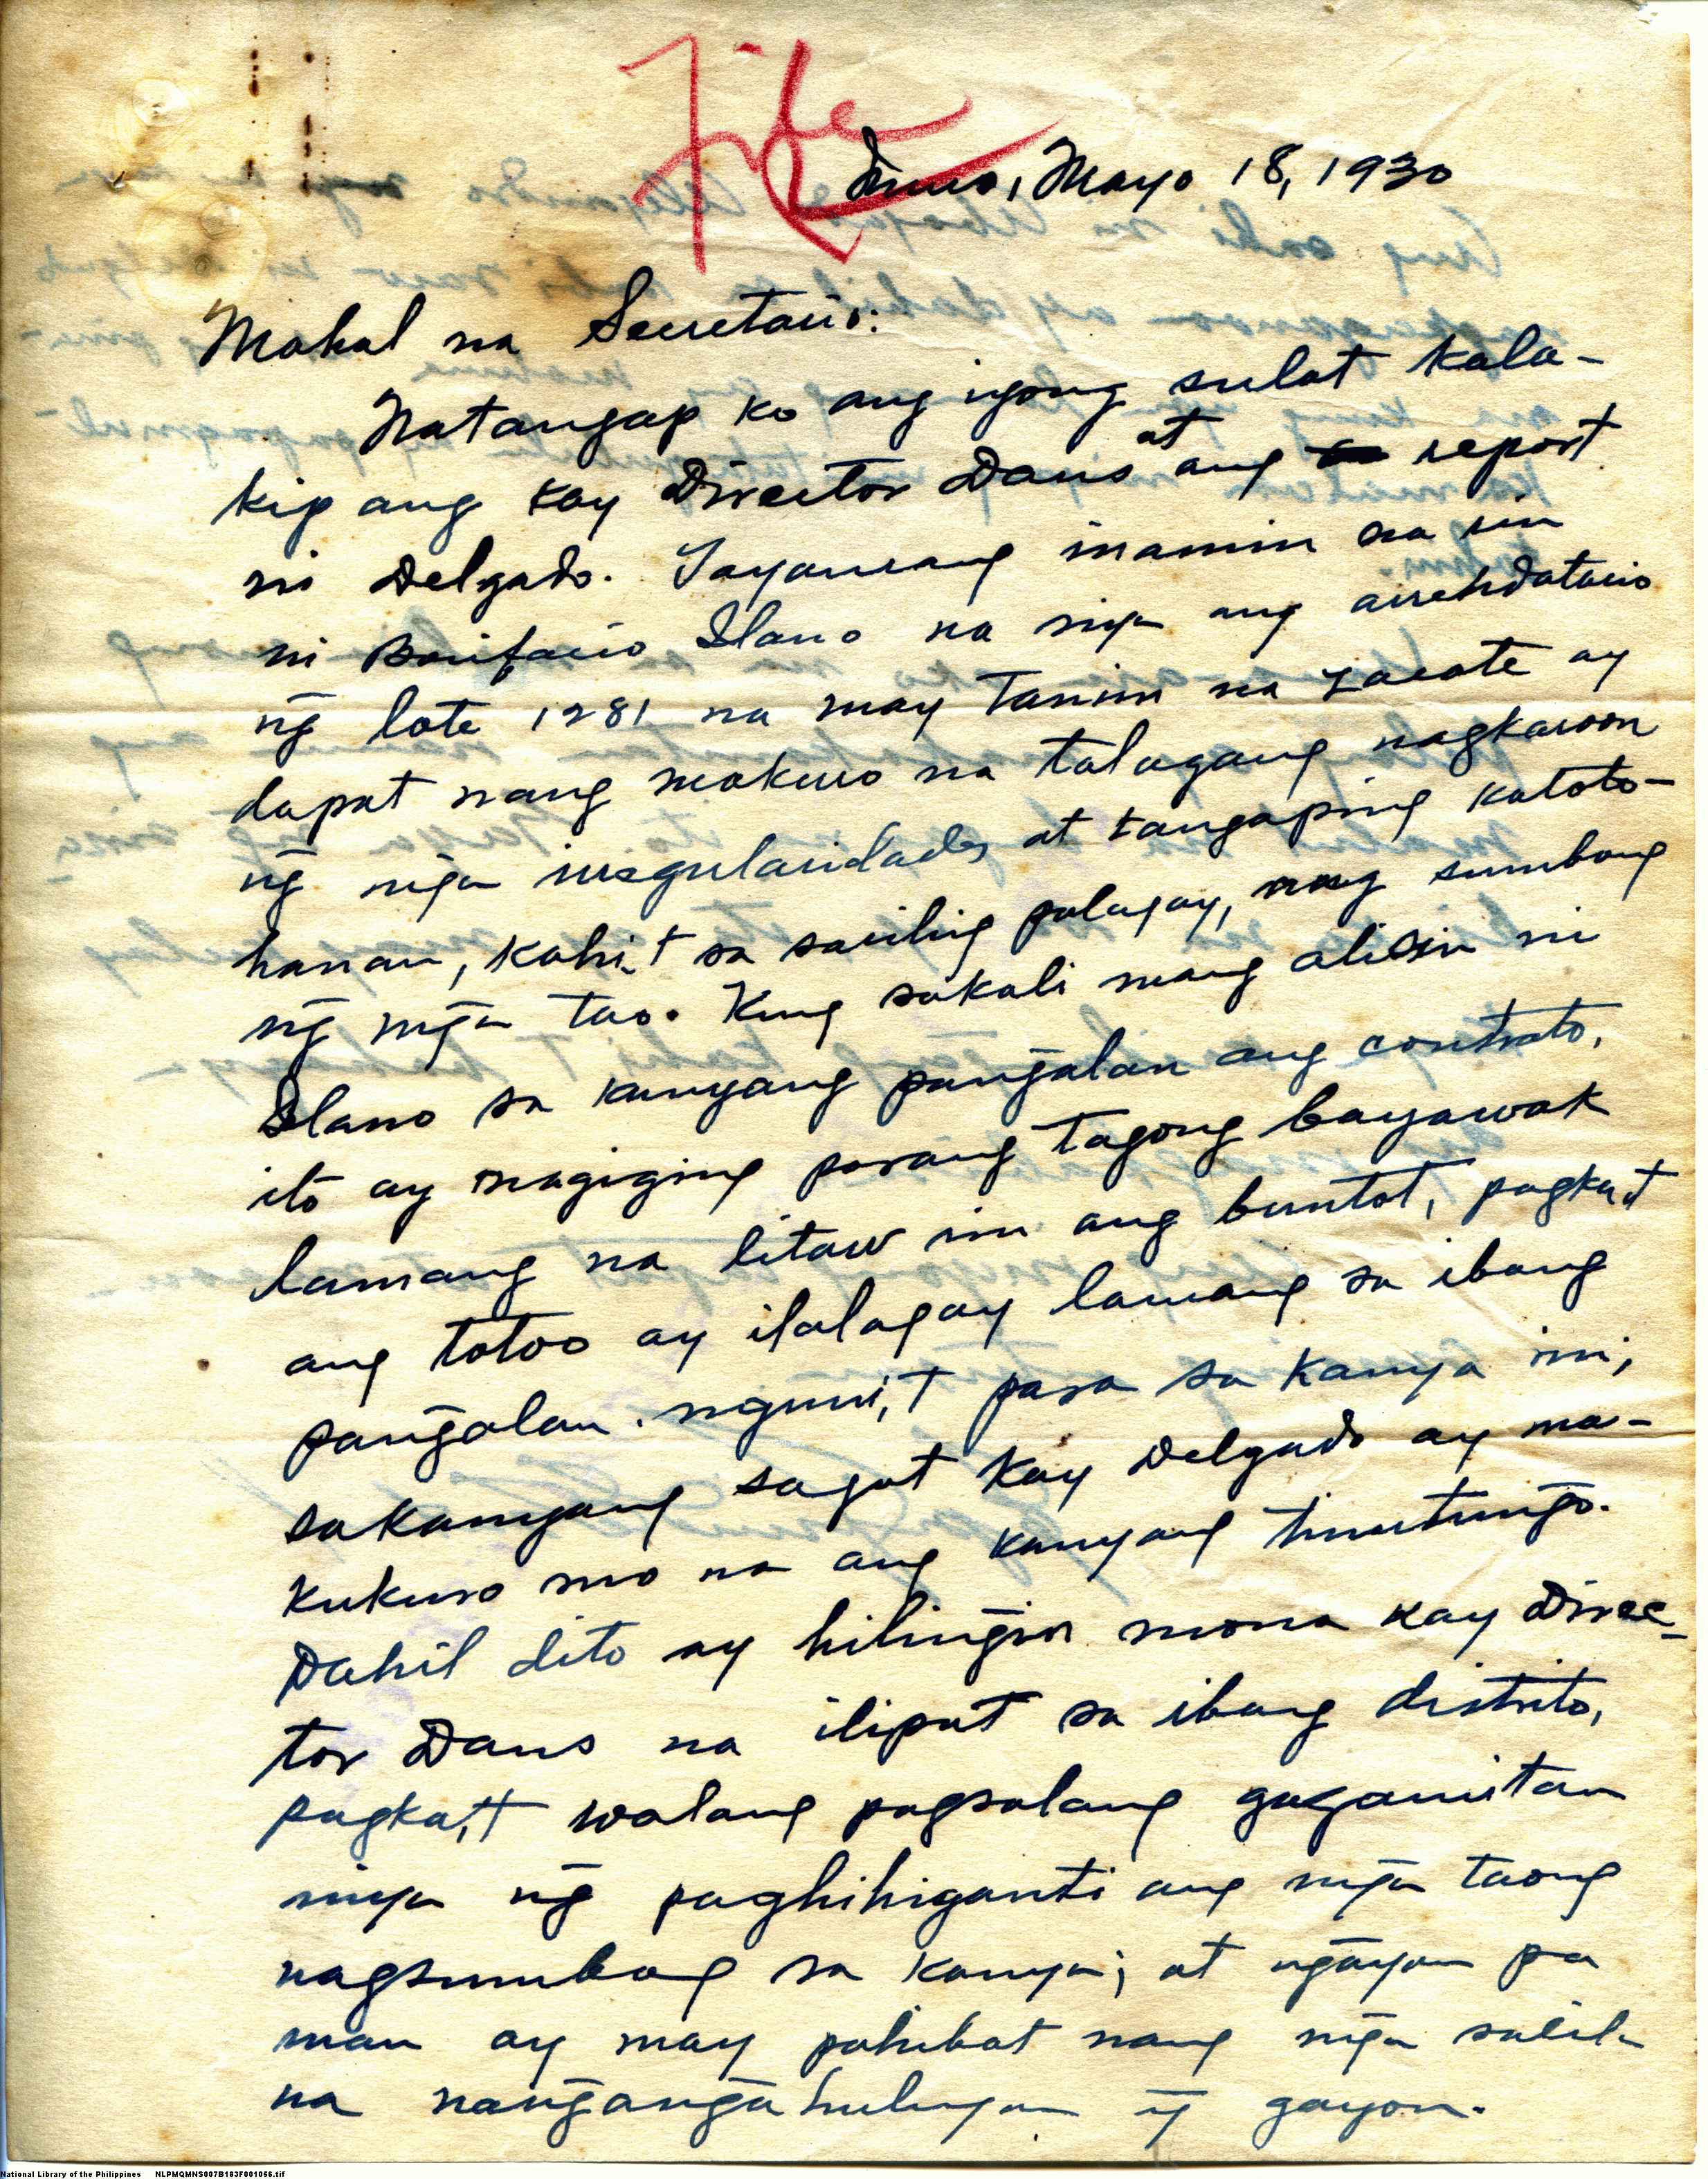 File
Imus, Mayo 18, 1930
Mahal na Secretario:
Natangap ko ang iyong sulat kala-
kip ang kay Director Dans at ang report
ni Delgado. Yayamang inamin na rin
ni Bonifacio Ilano na siya ang arrendatario
ng̃ lote 1281 na may tanim na zacate ay
dapat nang makuro na talagang nagkaroon
ng̃ mga irregularidades at tangaping katoto-
hanan, kahi,t sa sariling palagay, ang sumbong
ng̃ mg̃a tao. Kung sakali mang alisin ni
Ilano sa kanyang pang̃alan ang contrato,
ito ay magiging parang tagong bayawak
lamang na litaw rin ang buntot, pagka,t
ang totoo ay ilalagay lamang sa ibang
pang̃alan. nguni,t para sa kanya rin;
sakanyang sagot kay Delgado ay ma-
kukuro mo na ang kanyang tinutung̃o.
Dahil dito ay hiling̃in mona kay Direc-
tor Dans na ilipat sa ibang distrito,
pagka,t walang pagsalang gagamitan
niya ng̃ paghihiganti ang mg̃a taong
nagsumbong sa kanya; at ng̃ayon pa
man ay may pahibat nang mg̃a salita
na nang̃ang̃ahulugan ng̃ gayon.
National Library of the Philippines NLPMQMNS007B183F001056.tif